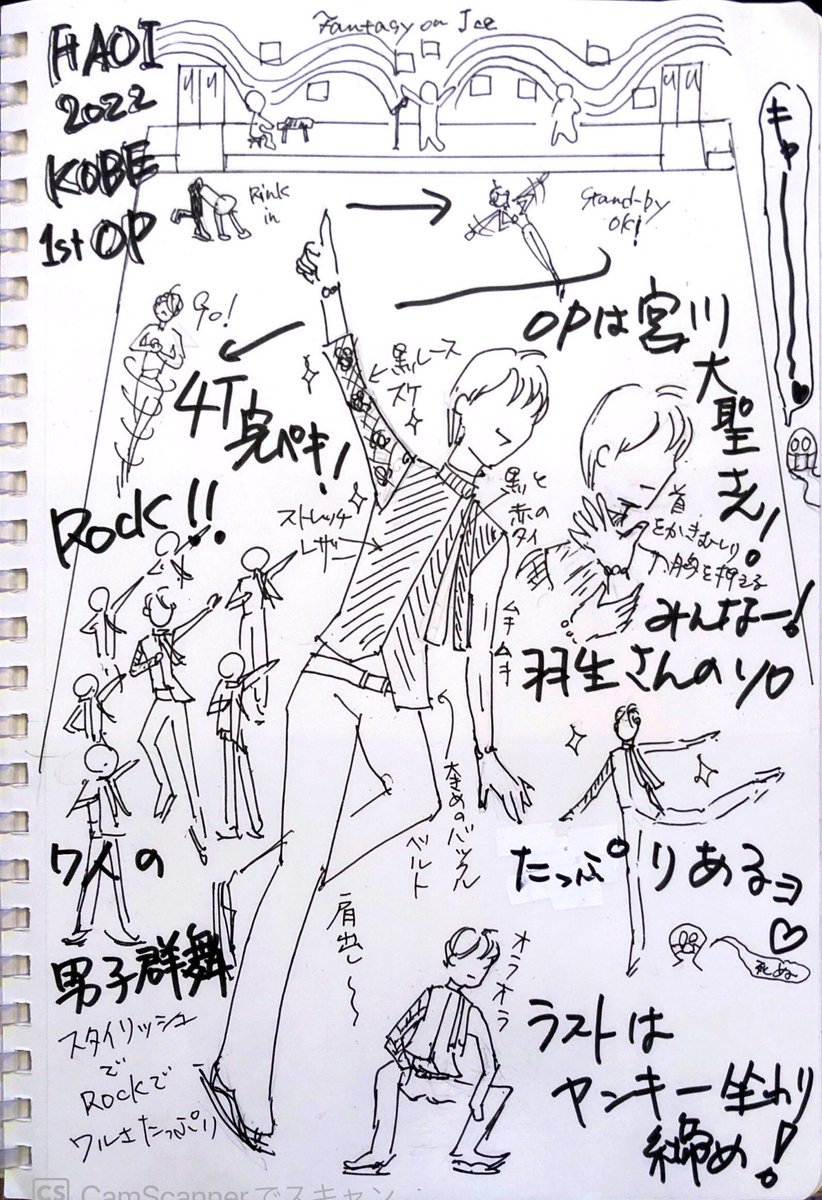 Fantasy on Ice
FAOI
2022
KOBE
1st OP
キャーーー♥
Rink
in
Stand-by
OK!
Go!
4T
完ペキ!
OPは宮川
大聖さん!
黒レース
スケ
ストレッチ
レザー
黒と
赤のタイ
首
をかきむしり
胸を押える
Rock!!
みんなー!
羽生さんのソロ
たっぷりあるヨ
♡
死ぬ
ムキムキ
大きめのバックル
ベルト
7人の
男子群舞
スタイリッシュ
で
Rockで
ワルさたっぷり
肩出し〜
オラオラ
ラストは
ヤンキー坐り
締め!
CS CamScannerでスキャン